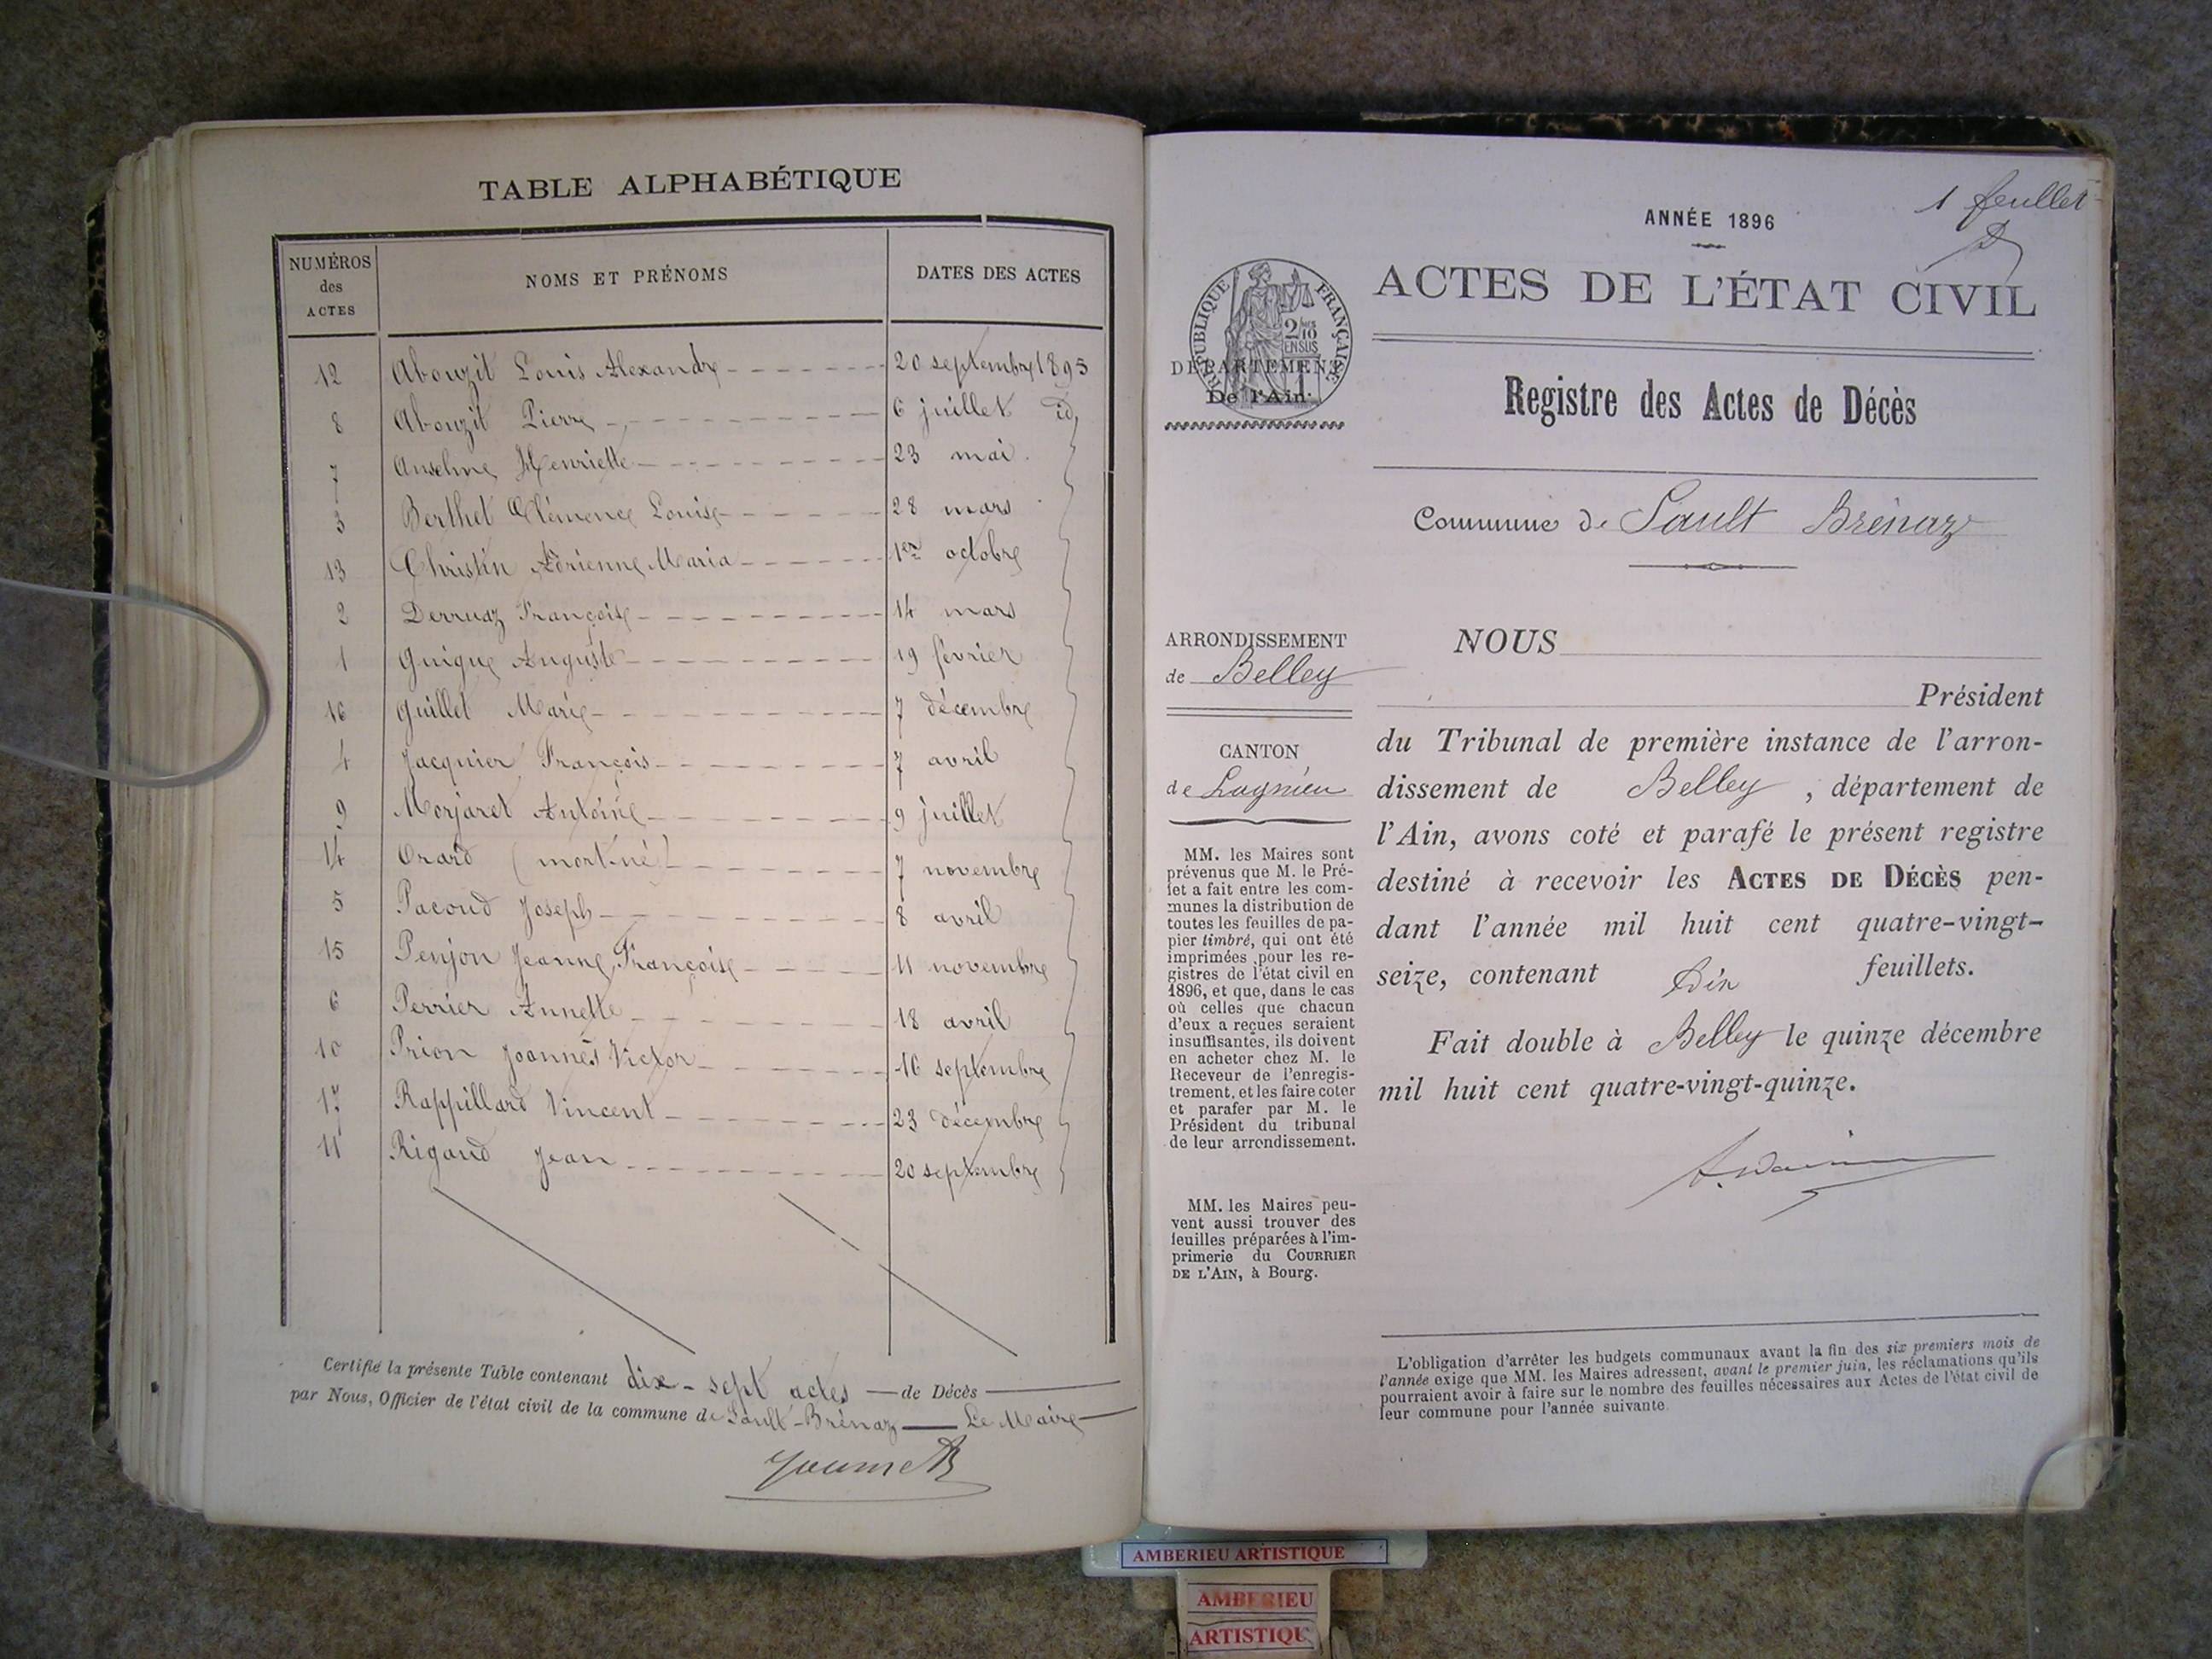 TABLE ALPHABÉTIQUE
NUMÉROS des ACTES NOMS ET PRÉNOMS DATES DES ACTES
12 Abouzit Louis Alexandre 20 septembre 1895
8 Abouzit Pierre 6 juillet id.
7 Anselme Henriette 23 mai
3 Berthet Clémence Louise 28 mars
13 Christin Adrienne Maria 1er octobre
2 Derruaz Françoise 14 mars
1 Guigue Auguste 19 février
16 Guillet Marie 7 décembre
4 Jacquier François 7 avril
9 Morjaret Antoine 9 juillet
14 Orard (mort-né) 7 novembre
5 Pacoud Joseph 8 avril
15 Penjon Jeanne Françoise 11 novembre
6 Perrier Annette 18 avril
10 Prion Joannès Victor 16 septembre
17 Rappillard Vincent 23 décembre
11 Rigaud Jean 20 septembre
Certifié la présente Table contenant dix-sept actes — de Décès
par Nous, Officier de l'état civil de la commune de Sault-Brénaz — Le Maire
1 feuillet
ANNÉE 1896
ACTES DE L'ÉTAT CIVIL
RÉPUBLIQUE FRANÇAISE
2/10 EN SUS
DÉPARTEMENT
De l'Ain.
Registre des Actes de Décès
Commune de Sault Brénaz
ARRONDISSEMENT
de Belley
CANTON
de Lagnieu
MM. les Maires sont
prévenus que M. le Pré-
fet a fait entre les com-
munes la distribution de
toutes les feuilles de pa-
pier timbré, qui ont été
imprimées pour les re-
gistres de l'état civil en
1896, et que, dans le cas
où celles que chacun
d'eux a reçues seraient
insuffisantes, ils doivent
en acheter chez M. le
Receveur de l'enregis-
trement, et les faire coter
et parafer par M. le
Président du tribunal
de leur arrondissement.
MM. les Maires peu-
vent aussi trouver des
feuilles préparées à l'im-
primerie du COURRIER
DE L'AIN, à Bourg.
NOUS
Président
du Tribunal de première instance de l'arron-
dissement de Belley, département de
l'Ain, avons coté et parafé le présent registre
destiné à recevoir les ACTES DE DÉCÈS pen-
dant l'année mil huit cent quatre-vingt-
seize, contenant dix feuillets.
Fait double à Belley le quinze décembre
mil huit cent quatre-vingt-quinze.
L'obligation d'arrêter les budgets communaux avant la fin des six premiers mois de
l'année exige que MM. les Maires adressent, avant le premier juin, les réclamations qu'ils
pourraient avoir à faire sur le nombre des feuilles nécessaires aux Actes de l'état civil de
leur commune pour l'année suivante.
AMBERIEU ARTISTIQUE
AMBERIEU
ARTISTIQU